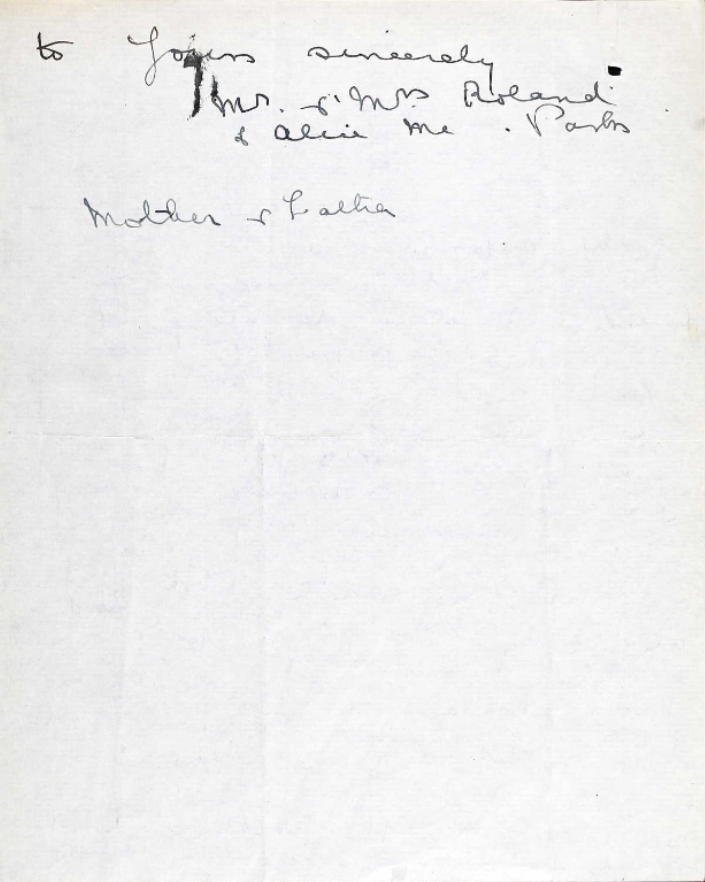 to Yours sincerely
Mr. & Mrs Roland
& Alice Mc. Parks
Mother & Father